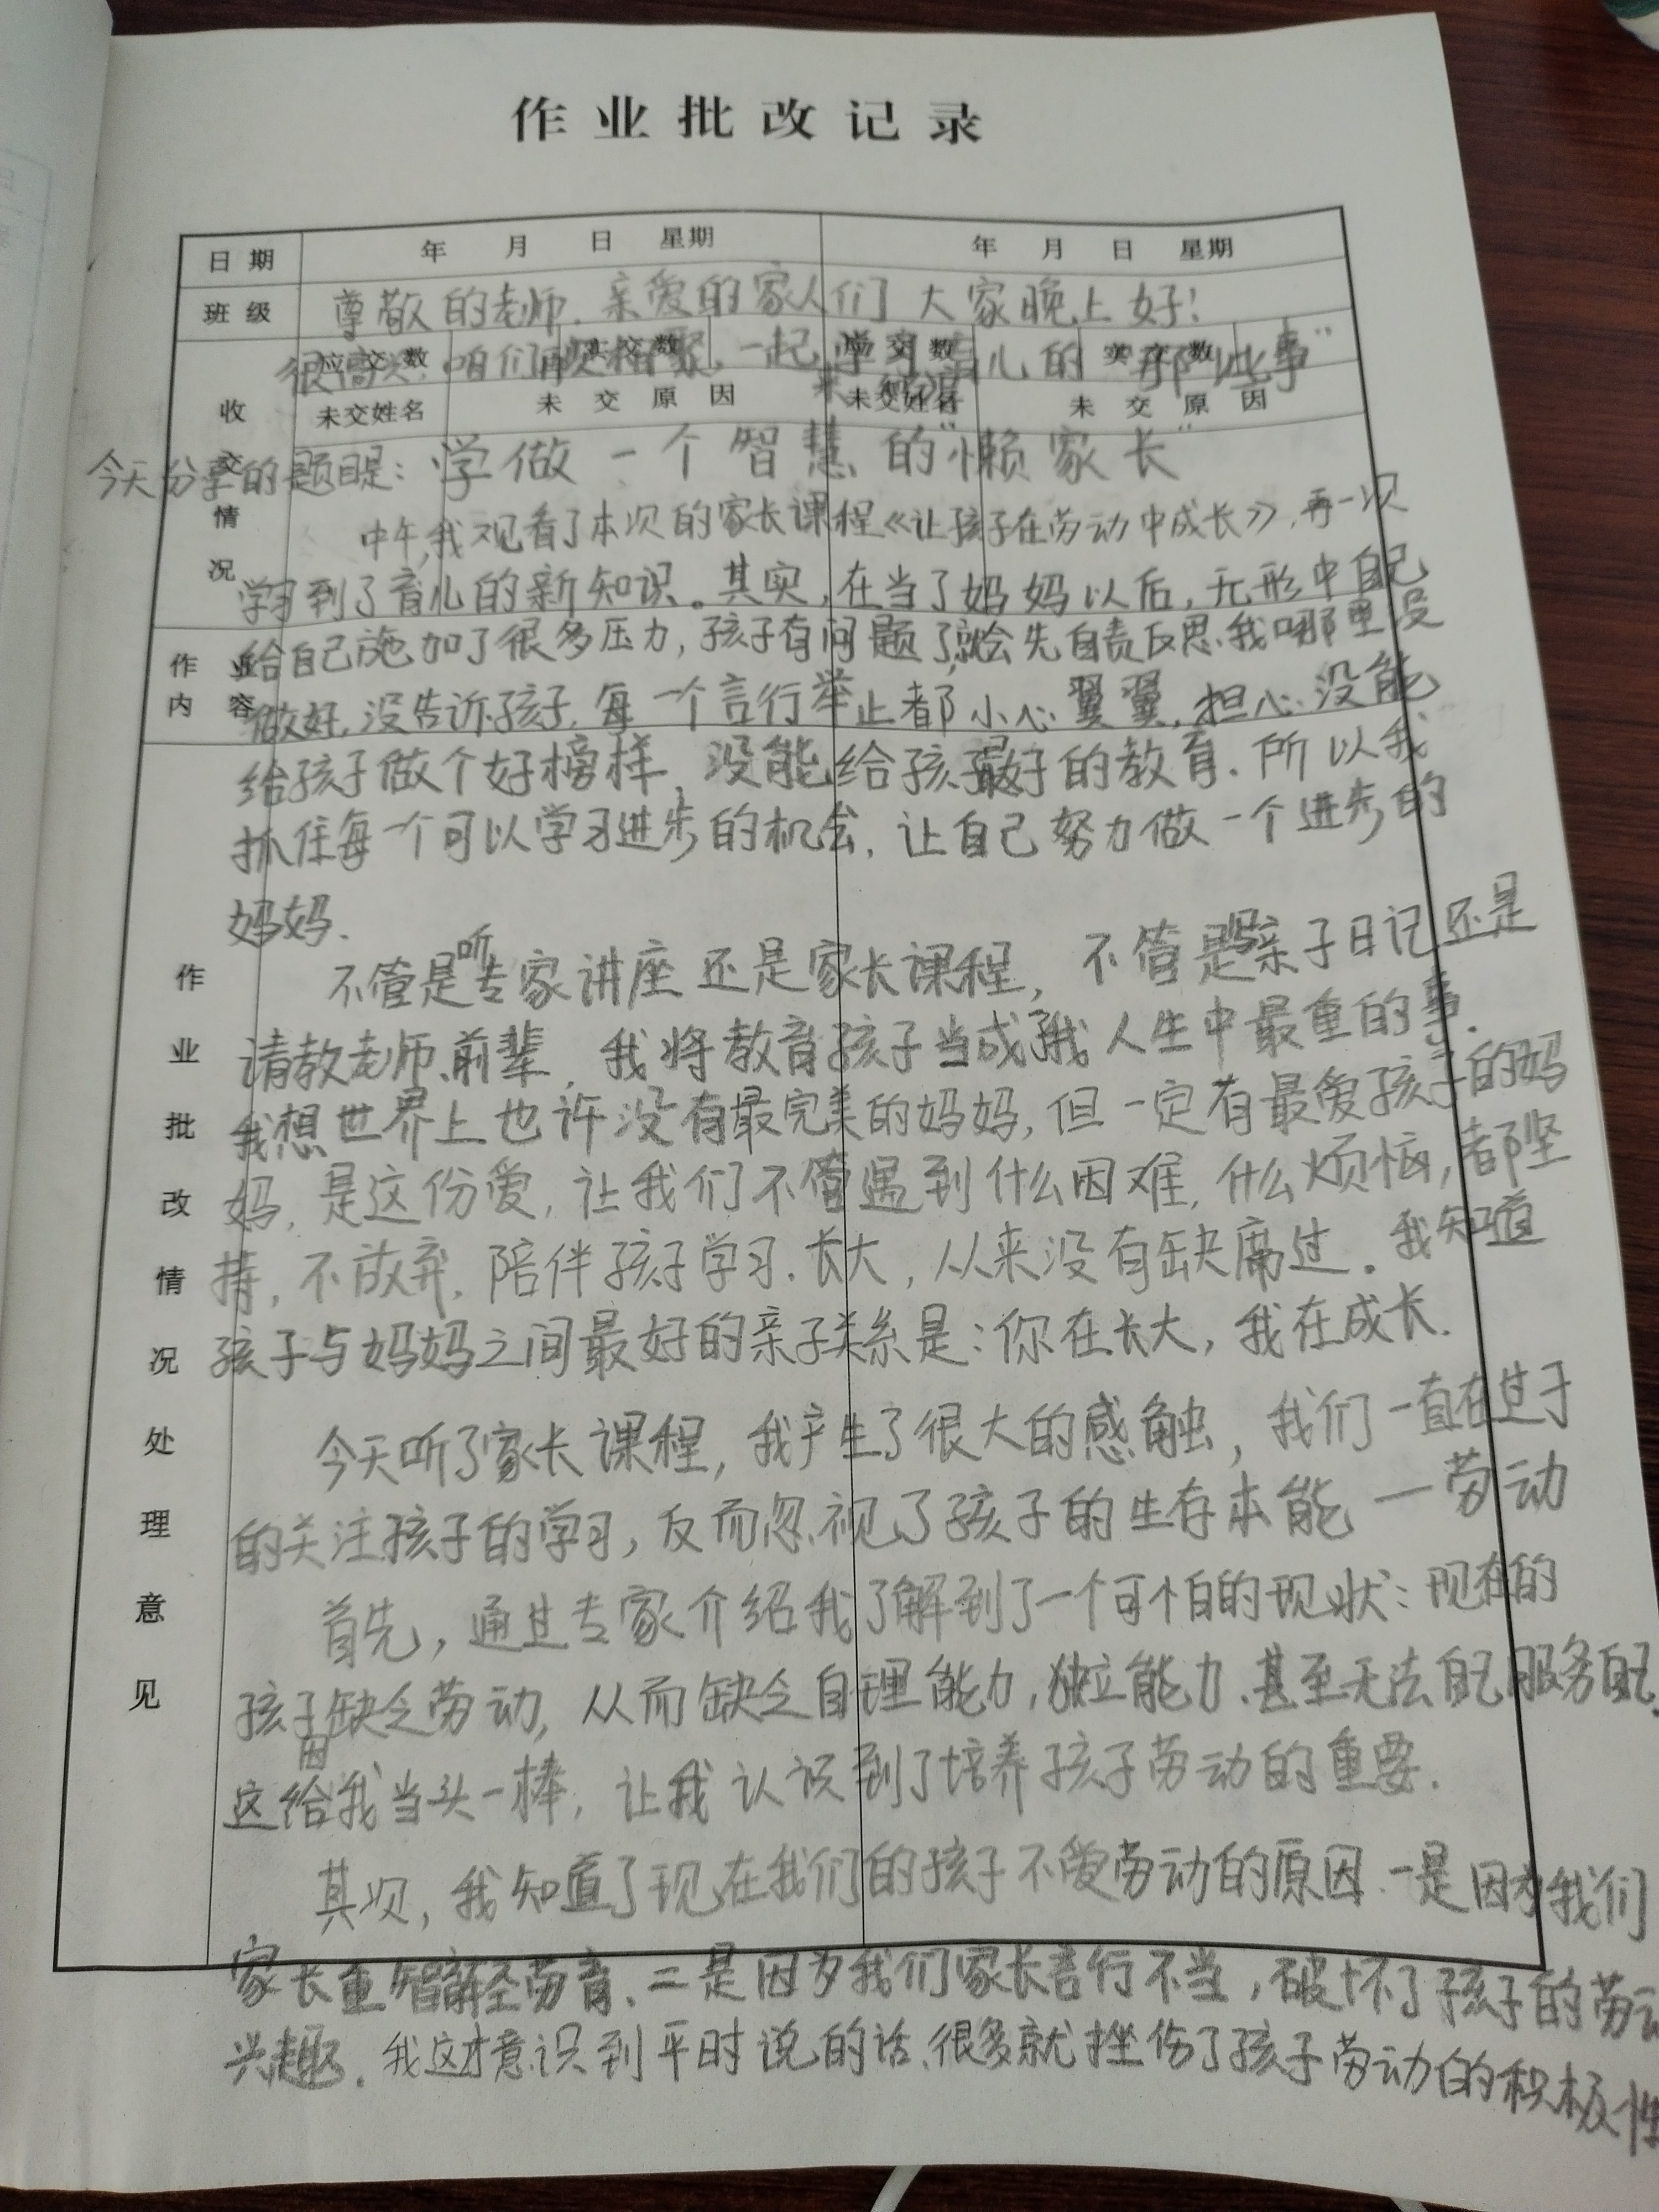 作业批改记录
日期 年 月 日 星期 年 月 日 星期
班级
尊敬的老师、亲爱的家人们 大家晚上好!
应交数 实交数 应交数 实交数
很高兴,咱们再次相聚,一起学习育儿的“那些事”
未交姓名 未交原因 未交姓名 未交原因
收交情况
今天分享的题目是:学做一个智慧的“懒家长”
中午,我观看了本次的家长课程《让孩子在劳动中成长》,再一次
学习到了育儿的新知识。其实,在当了妈妈以后,无形中自己
作业内容
给自己施加了很多压力,孩子有问题了,就会先自责反思我哪里没
做好,没告诉孩子,每一个言行举止都小心翼翼,担心没能
给孩子做个好榜样,没能给孩子最好的教育.所以我
抓住每一个可以学习进步的机会,让自己努力做一个进步的
妈妈.
作业批改情况处理意见
不管是听专家讲座还是家长课程,不管是写亲子日记还是
请教老师、前辈,我将教育孩子当成了我人生中最重的事.
我想世界上也许没有最完美的妈妈,但一定有最爱孩子的妈
妈,是这份爱,让我们不管遇到什么困难,什么烦恼,都坚
持,不放弃.陪伴孩子学习、长大,从来没有缺席过。我知道
孩子与妈妈之间最好的亲子关系是:你在长大,我在成长.
今天听了家长课程,我产生了很大的感触,我们一直在过于
的关注孩子的学习,反而忽视了孩子的生存本能—劳动
首先,通过专家介绍我了解到了一个可怕的现状:现在的
孩子因缺乏劳动,从而缺乏自理能力,独立能力、甚至无法自己服务自己.
这给我当头一棒,让我认识到了培养孩子劳动的重要.
其次,我知道了现在我们的孩子不爱劳动的原因.一是因为我们
家长重智育轻劳育、二是因为我们家长言行不当,破坏了孩子的劳动
兴趣.我这才意识到平时说的话、很多就挫伤了孩子劳动的积极性